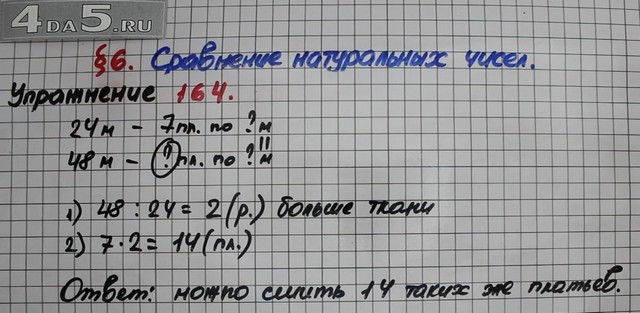 4DA5.RU
§6. Сравнение натуральных чисел.
Упражнение 164.
24 м - 7 пл. по ? м
"
48 м - ? пл. по ? м
1) 48 : 24 = 2 (р.) больше ткани
2) 7 · 2 = 14 (пл.)
Ответ: можно сшить 14 таких же платьев.